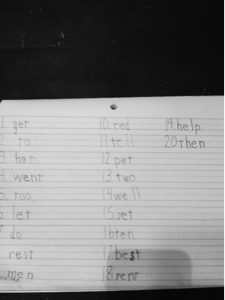 1. get
2. ra
3. her
4. went
5. too
6. let
7. do
rest
men
10. red
11. tell
12. pet
13. two
14. well
15. set
16. ten
17. best
18. sent
19. help
20. then